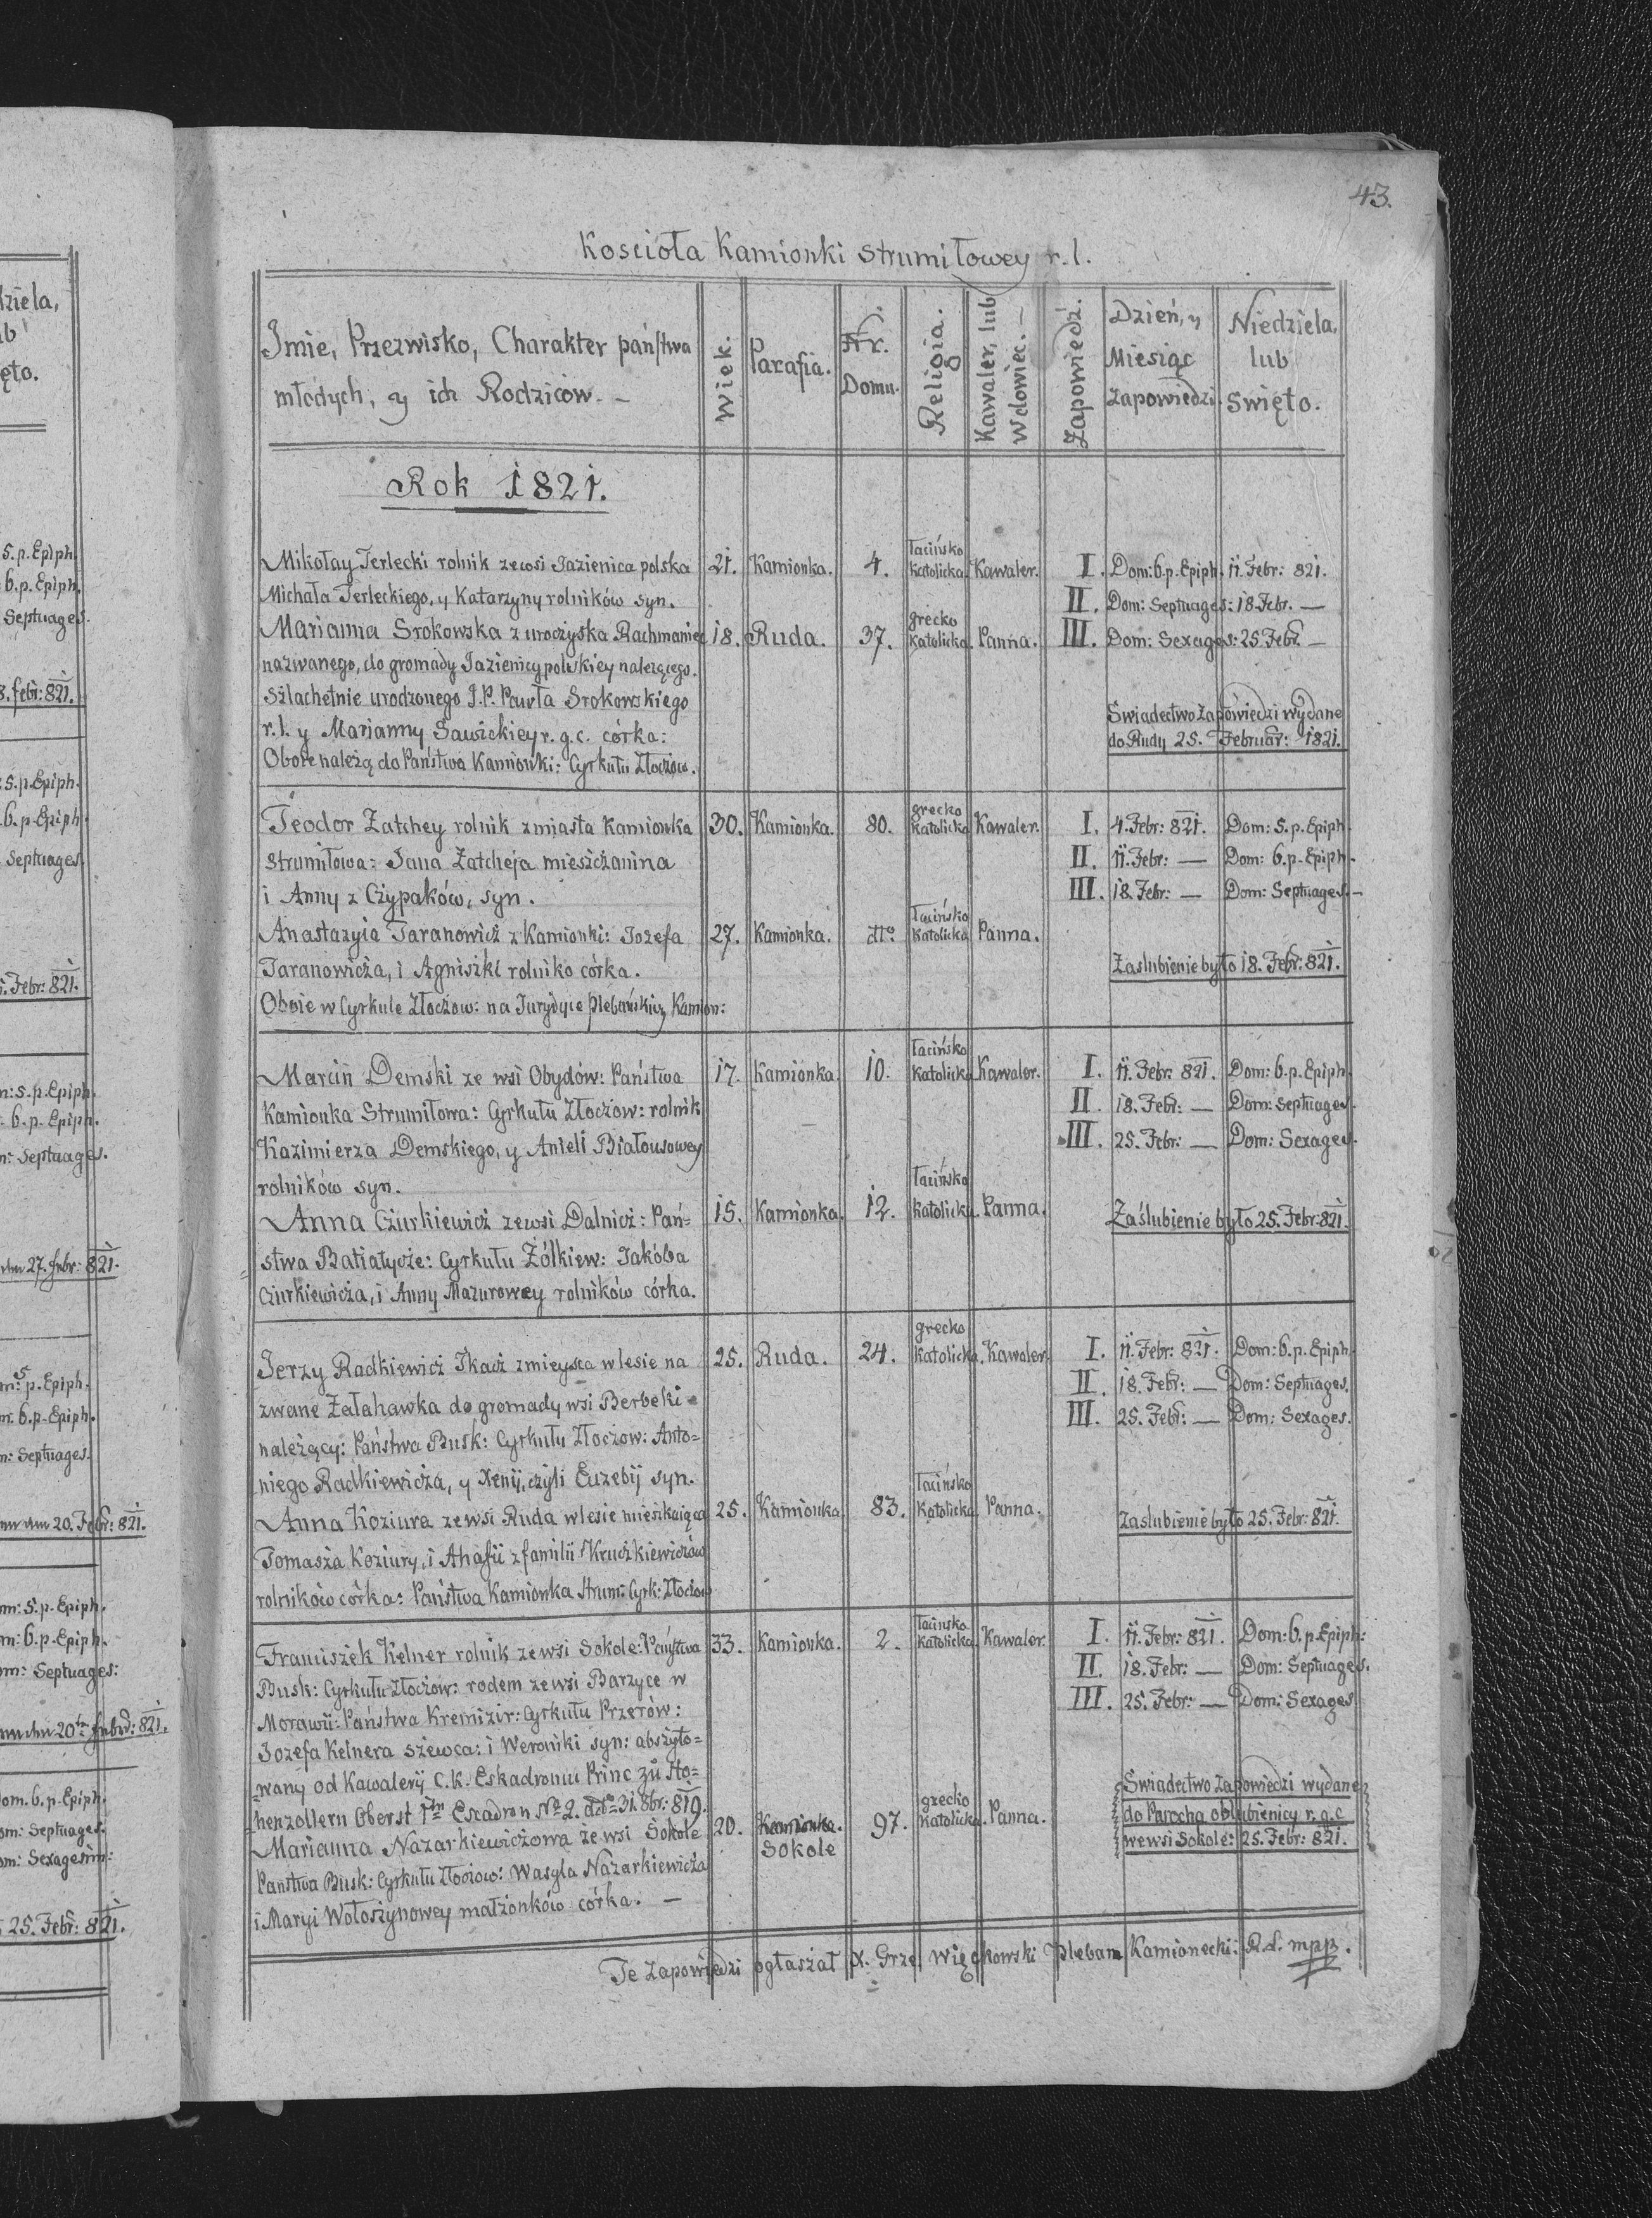 43.
Kościoła Kamionki Strumiłowey r. l.
Imie, Przezwisko, Charakter państwa młodych, y ich Rodziców. –
Wiek.
Parafia.
Nr. Domu.
Religia.
Kawaler, lub Wdowiec. –
Zapowiedź.
Dzień, y Miesiąc Zapowiedzi.
Niedziela, lub Swięto.
Rok 1821.
Mikołay Terlecki rolnik zewsi Jazienica polska 21. Kamionka. 4. łacińsko katolicka. Kawaler. I. Dom: 6. p. Epiph. 11. Febr: 821.
Michała Terleckiego, y Katarzyny rolników syn. II. Dom: Septuages: 18. Febr. —
Marianna Srokowska z uroczyska Rachmaniec 18. Ruda. 37. grecko katolicka. Panna. III. Dom: Sexages: 25. Febr. —
nazwanego, do gromady Jazienicy polskiey należącego.
Szlachetnie urodzonego J. P. Pawła Srokowskiego
r. l. y Marianny Sawickiey r. g. c. córka:
Swiadectwo Zapowiedzi wydane
do Rudy 25. Februar: 1821.
Oboie należą do Państwa Kamionki: Cyrkułu Złoczow.
Teodor Zatchey rolnik z miasta Kamionka 30. Kamionka. 80. grecko katolicka Kawaler. I. 4. Febr: 821. Dom: 5. p. Epiph.
Strumiłowa: Jana Zatcheja mieszczanina II. 11. Febr: — Dom: 6. p. Epiph.
i Anny z Czypaków, syn. III. 18. Febr: — Dom: Septuages. –
Anastazyia Taranowicz z Kamionki: Jozefa 27. Kamionka. dto. łacińsko katolicka Panna.
Taranowicza, i Agniszki rolniko córka.
Zaslubienie było 18. Febr: 821.
Oboie w Cyrkule Złoczow: na Jurydyce Plebańskiey Kamion:
Marcin Demski ze wsi Obydów: Państwa 17. Kamionka. 10. łacińsko katolicka Kawaler. I. 11. Febr: 821. Dom: 6. p. Epiph.
Kamionka Strumiłowa: Cyrkułu Złoczow: rolnik II. 18. Febr: — Dom: Septuages.
Kazimierza Demskiego, y Anieli Białousowey III. 25. Febr: — Dom: Sexages.
rolników syn.
Anna Cziurkiewicz zewsi Dalnicz: Pań= 15. Kamionka. 12. łacińsko katolicka. Panna. Zaślubienie było 25. Febr: 821.
stwa Batiatycze: Cyrkułu Żółkiew: Jakóba
Cziurkiewicza, i Anny Mazurowey rolników córka.
Jerzy Radkiewicz Tkacz z mieysca w lesie na 25. Ruda. 24. grecko katolicka. Kawaler. I. 11. Febr: 821. Dom: 6. p. Epiph.
zwane Załahawka do gromady wsi Berbeki II. 18. Febr: — Dom: Septuages.
należący: Państwa Busk: Cyrkułu Złoczow: Anto= III. 25. Febr: — Dom: Sexages.
niego Radkiewicza, y Xenij, czyli Euzebij syn.
Anna Koziura zewsi Ruda w lesie mieszkaiąca 25. Kamionka. 83. łacińsko katolicka Panna. Zaslubienie było 25. Febr: 821.
Tomasza Koziury, i Ahafii z familii Kruczkiewiczów
rolników córka: Państwa Kamionka Strum: Cyrk: Złoczow
Franciszek Kelner rolnik zewsi Sokole: Państwa 33. Kamionka. 2. łacinsko katolicka. Kawaler. I. 11. Febr: 821. Dom: 6. p. Epiph:
Busk: Cyrkułu Złoczow: rodem zewsi Barzyce w II. 18. Febr: — Dom: Septuages.
Morawii: Państwa Kremizir: Cyrkułu Przerów: III. 25. Febr: — Dom: Sexages.
Jozefa Kelnera szewca: i Weroniki syn: abszyto=
wany od Kawaleryi C. K. Eskadronu Princ zu Ho=
henzollern Oberst 1tn Escadron No 2. ddto 31. 8br: 819.
Swiadectwo Zapowiedzi wydane
do Parocha oblubienicy r. g. c.
wewsi Sokole: 25. Febr: 821.
Marianna Nazarkiewiczowa ze wsi Sokole 20. Kamionka. Sokole 97. grecko katolicka. Panna.
Panstwa Busk: Cyrkułu Złoczow: Wasyla Nazarkiewicza
i Maryi Wołoszynowey małżonków córka. —
Te Zapowiedzi ogłaszał X. Grze. Więckowski Pleban Kamionecki: R. l. mpp.